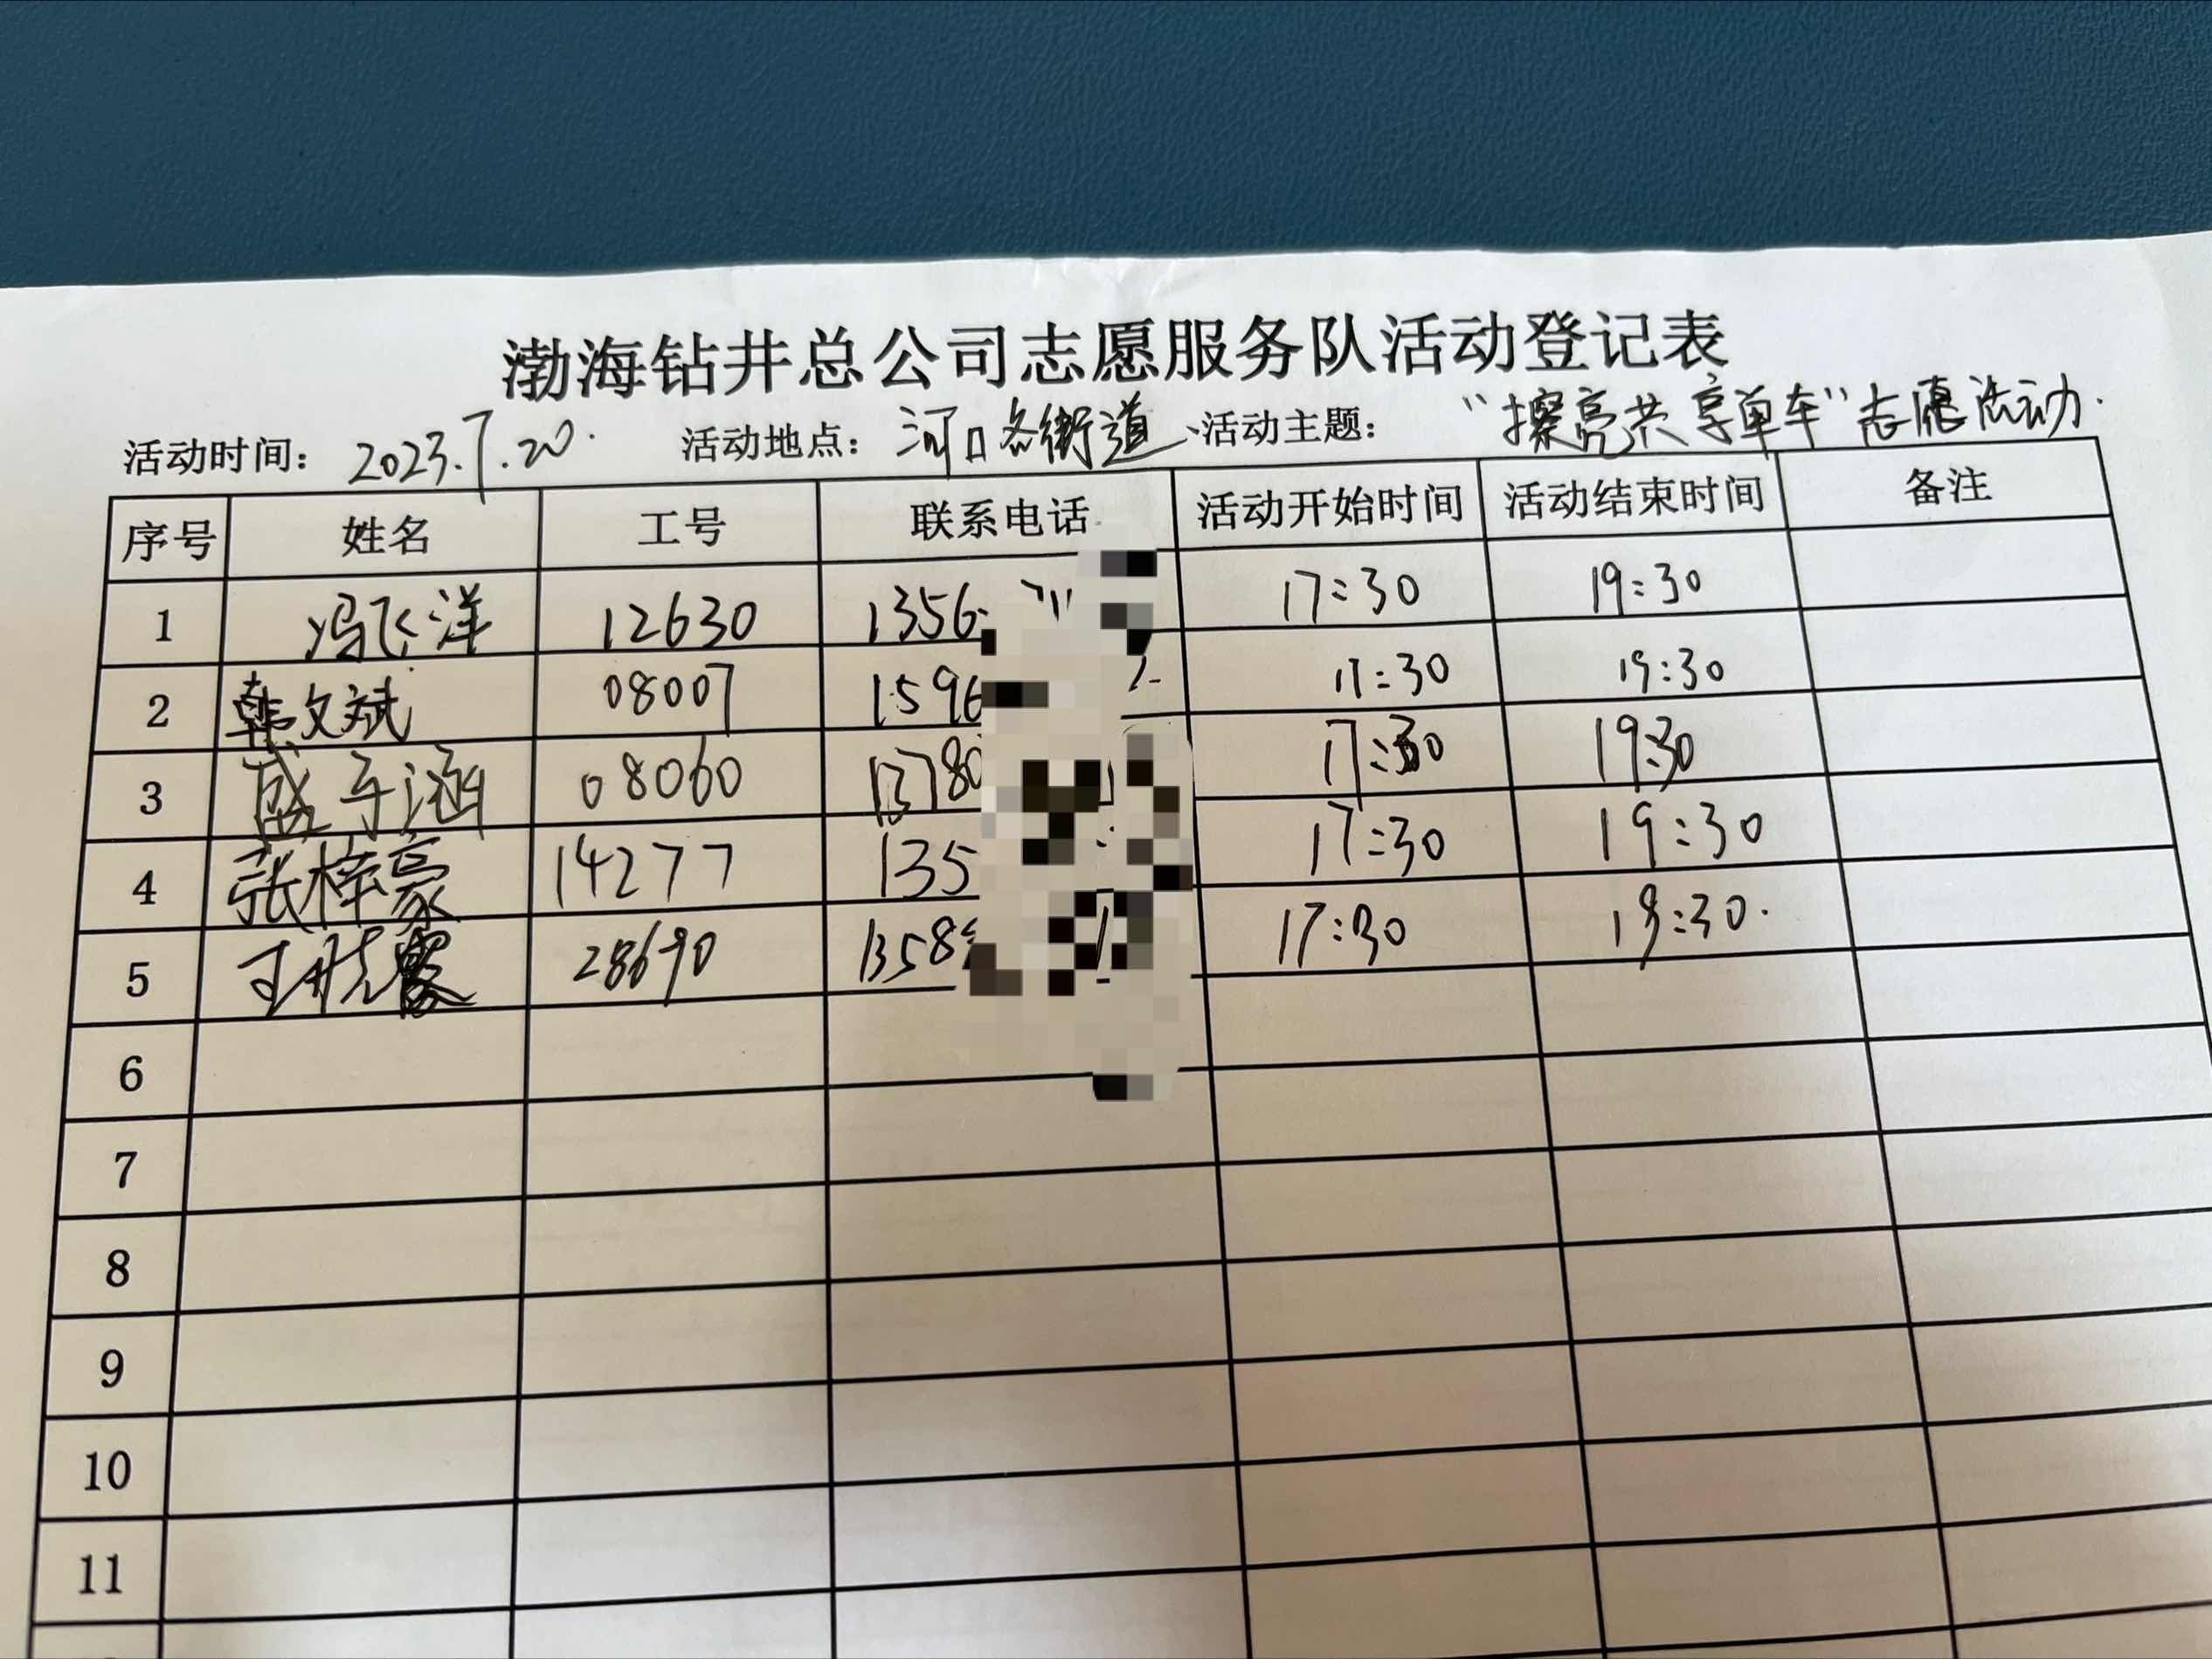 渤海钻井总公司志愿服务队活动登记表
活动时间： 2023.7.20. 活动地点： 河口各街道 活动主题： “擦亮共享单车”志愿活动.
序号 姓名 工号 联系电话 活动开始时间 活动结束时间 备注
1 冯飞洋 12630 1356 17:30 19:30
2 韩文斌 08007 1596 17:30 19:30
3 盛 涵 08060 13780 17:30 19:30
4 张梓豪 14277 135 17:30 19:30
5 王 28690 1358 17:30 19:30.
6
7
8
9
10
11